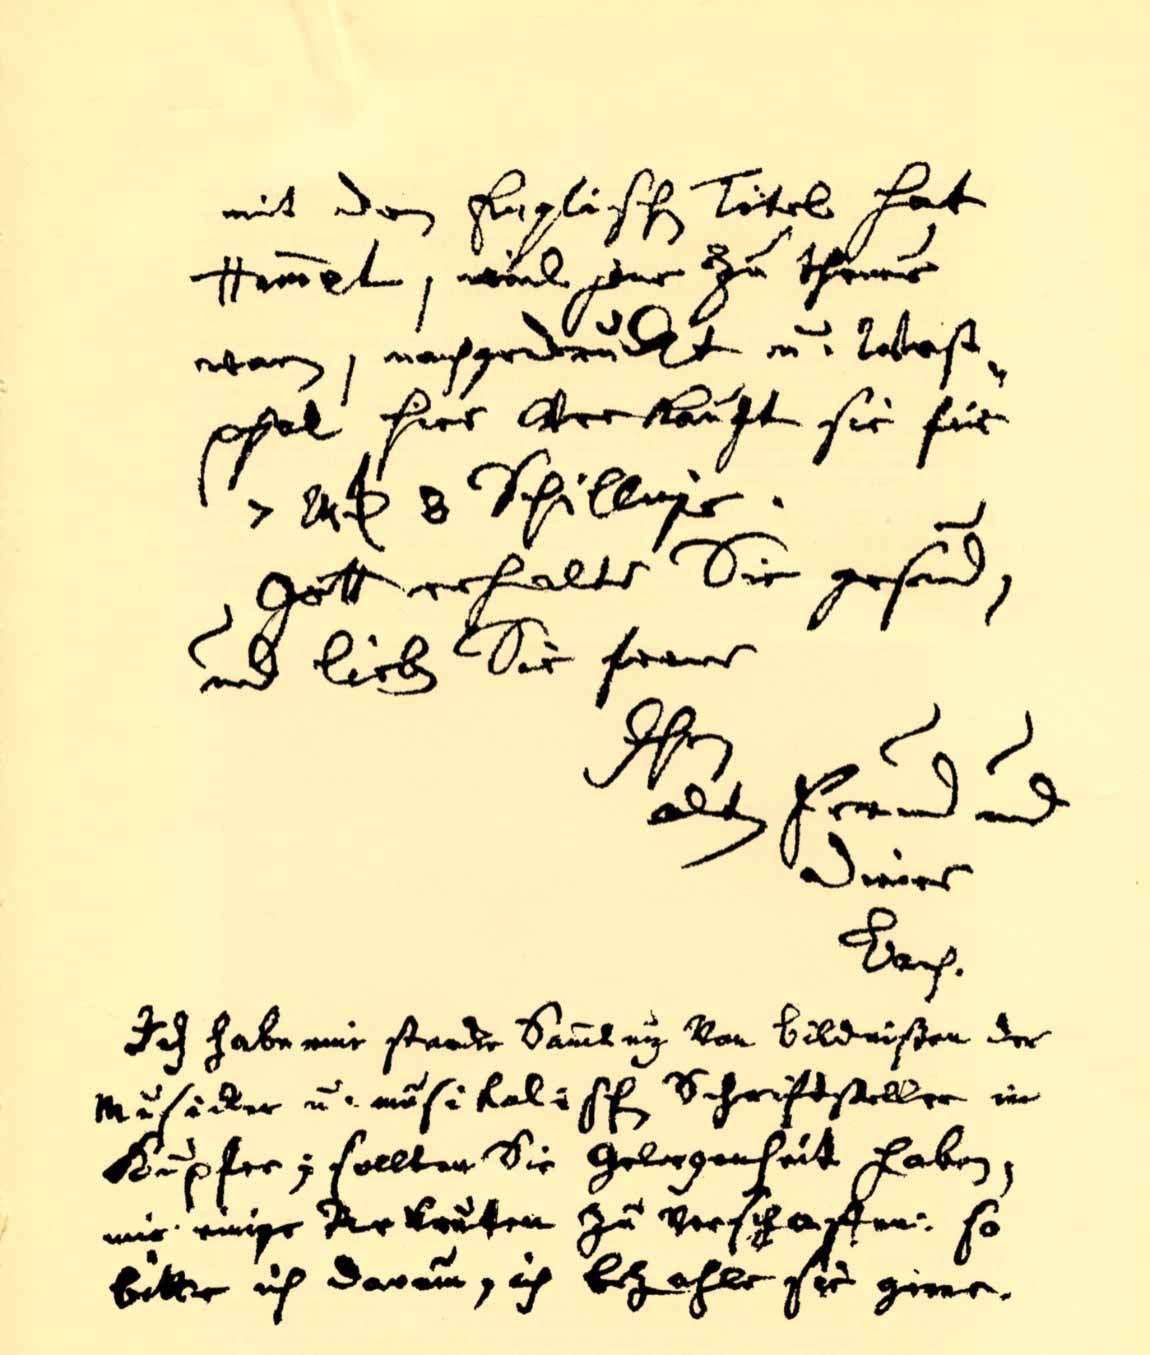 mit dem Englischen Titel hat
Hummel, weil jene zu theuer
waren, nachgedruckt u. West-
phal hier verkauft sie für
7 Mk 8 Schillinge.
Gott erhalte Sie gesund,
und lieben Sie ferner
Ihren
alten Freund und
Diener
Bach.
Ich habe eine starke Samlung von Bildnißen der
Musicker u. musikalischen Schriftsteller in
Kupfer; sollten Sie Gelegenheit haben,
mir einige Rekruten zu verschaffen: so
bitte ich darum, ich bezahle sie gerne.